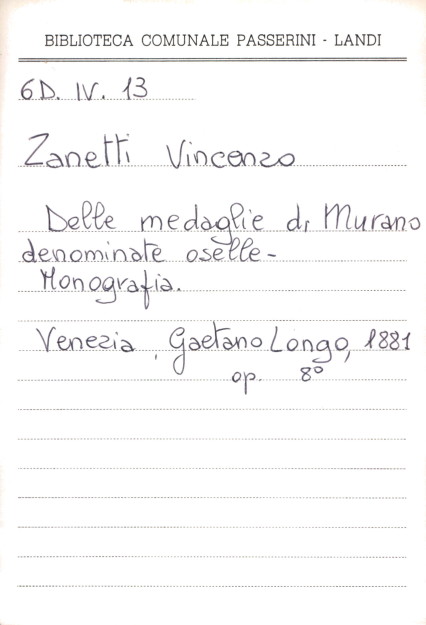 BIBLIOTECA COMUNALE PASSERINI - LANDI
6D. IV. 13
Zanetti Vincenzo
Delle medaglie di Murano
denominate oselle -
Monografia.
Venezia, Gaetano Longo, 1881
op. 8°